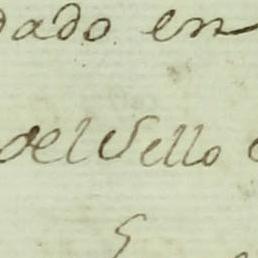 dado en
del Sello